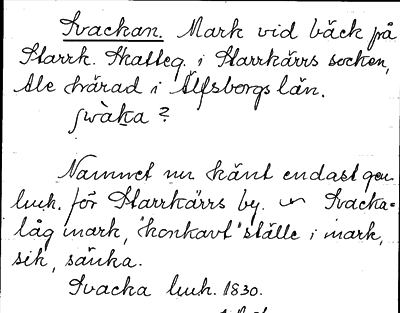 Svackan. Mark vid bäck på
Starrk. Skatteg. i Starrkärrs socken,
Ale härad i Älfsborgs län.
swàka?
Namnet nu känt endast gen.
luk. för Starrkärrs by. Svacka=
låg mark, "konkavt" ställe i mark,
sik, sänka.
Svacka luk. 1830.